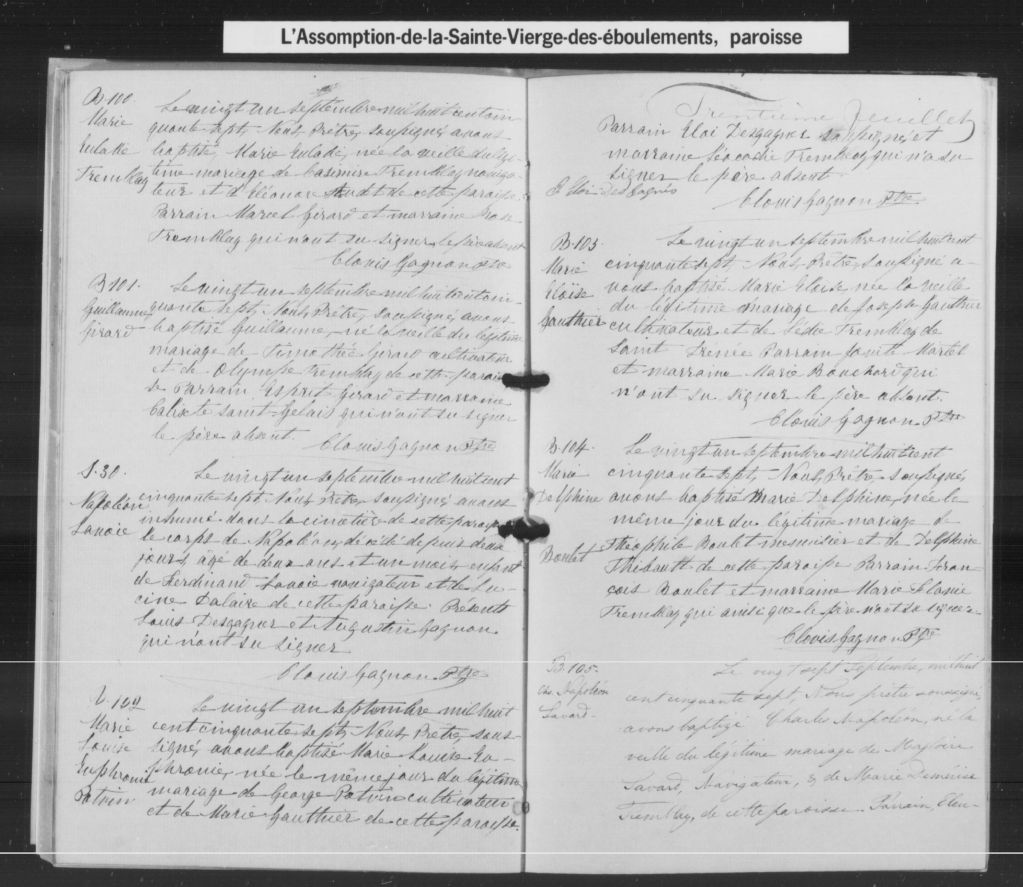 L'Assomption-de-la-Sainte-Vierge-des-éboulements, paroisse
B-100
Marie
Eulalie
Tremblay
Le vingt un septembre mil huit cent cin
quante sept, Nous Prêtre soussigné, avons
baptisé, Marie Eulalie, née la veille du légi-
time mariage de Casemire Tremblay naviga-
teur et d'Eléonore de cette paroisse
Parrain Marcel Girard et marraine Rose
Tremblay qui n'ont su signer le père absent
Clovis Gagnon Ptre
B 101.
Guillaume
Girard
Le vingt un septembre mil huit cent cin-
quante sept, Nous, Prêtre, soussigné, avons
baptisé Guillaume, né la veille du légitime
mariage de Timothée Girard cultivateur
et de Olympe Tremblay de cette parois
se Parrain Esprit Girard et marraine
Calixte Saint-Gelais qui n'ont su signer
le père absent.
Clovis Gagnon Ptre
S-30
Napoléon
Lavoie
Le vingt un septembre mil huit cent
cinquante sept, Nous, Prêtre, soussigné, avons
inhumé dans le cimetière de cette paroisse
le corps de Napoléon, décédé depuis deux
jours, âgé de deux ans et un mois, enfant
de Ferdinand Lavoie navigateur et de Lu-
cine Dalaire de cette paroisse. Présents
Louis Desgagner et Augustin Gagnon
qui n'ont su signer
Clovis Gagnon Ptre
B-102
Marie
Louise
Euphronie
Potvin
Le vingt un septembre mil huit
cent cinquante sept, Nous, Prêtre, sous-
signé, avons baptisé Marie Louise Eu-
phronie, née le même jour du légitime
mariage de George Potvin cultivateur
et de Marie Gauthier de cette paroisse.
Trentième feuillet
Parrain Eloi Desgagner soussigné, et
marraine Léocadie Tremblay qui n'a su
signer le père absent
Eloi Desgagnés
Clovis Gagnon Ptre
B-103.
Marie
Eloïse
Gauthier
Le vingt un septembre mil huit cent
cinquante sept, Nous, Prêtre, soussigné a-
vons baptisé Marie Eloise née la veille
du légitime mariage de Joseph Gauthier
cultivateur et de Tremblay de
Saint Irénée Parrain Martel
et marraine Marie Bouchard qui
n'ont su signer le père absent.
Clovis Gagnon Ptre
B-104.
Marie
Delphine
Boulet
Le vingt un septembre mil huit cent
cinquante sept, Nous, Prêtre soussigné,
avons baptisé Marie Delphine, née le
même jour du légitime mariage de
Théophile Boulet menuisier et de Delphine
Thibault de cette paroisse Parrain Fran-
çois Boulet et marraine Marie
Tremblay qui ainsi que le père n'ont su signer.
Clovis Gagnon Ptre
B-105.
Chs Napoléon
Savard.
Le vingt sept Septembre, mil huit
cent cinquante sept Nous prêtre soussigné,
avons baptizé Charles Napoléon, né la
veille du légitime mariage de Magloire
Savard, Navigateur, & de Marie Démérise
Tremblay, de cette paroisse. Parrain,